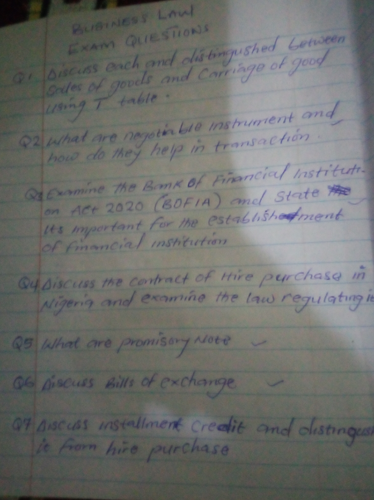 BUSINESS LAW
EXAM QUESTIONS
Q1 Discuss each and distinguished between
Sales of goods and Carriage of good
using T table.
Q2 What are negotiable instrument and
how do they help in transaction.
Q3 Examine the Bank of Financial Instituti-
on Act 2020 (BOFIA) and State
its important for the establishment
of financial institution
Q4 Discuss the contract of Hire purchase in
Nigeria and examine the law regulating it
Q5 What are promisory Note
Q6 Discuss Bills of exchange
Q7 Discuss installment credit and distinguish
it from hire purchase